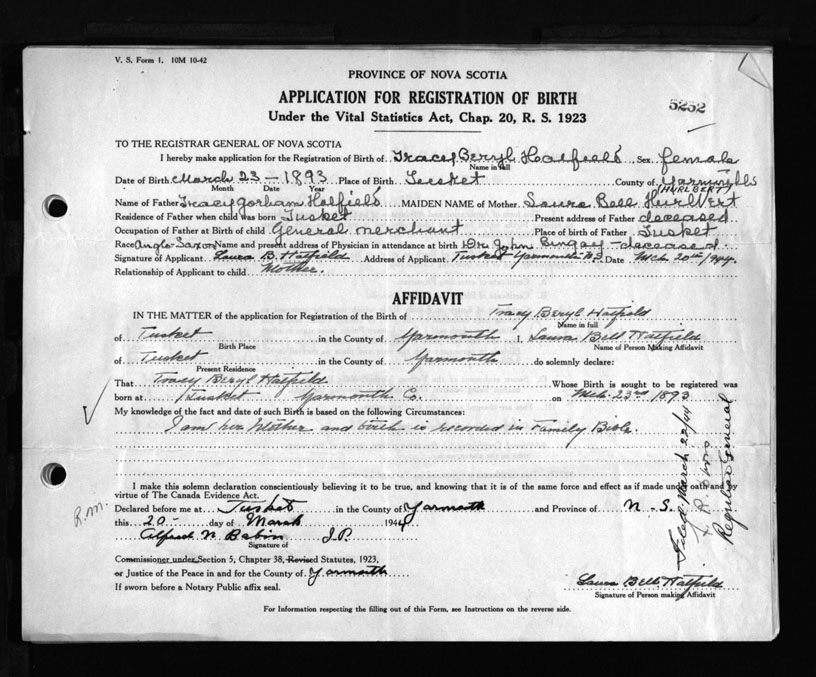 V. S. Form 1. 10M 10-42
PROVINCE OF NOVA SCOTIA
APPLICATION FOR REGISTRATION OF BIRTH
5252
Under the Vital Statistics Act, Chap. 20, R. S. 1923
TO THE REGISTRAR GENERAL OF NOVA SCOTIA
I hereby make application for the Registration of Birth of Tracy Beryl Hatfield Sex female
Name in full
Date of Birth March 23 - 1893 Place of Birth Tusket County of Yarmouth
Month Date Year
(HURLBERT)
Name of Father Tracy Gorham Hatfield MAIDEN NAME of Mother Laura Bell Hurlbert
Residence of Father when child was born Tusket Present address of Father deceased
Occupation of Father at Birth of child General merchant Place of birth of Father Tusket
Race Anglo-Saxon Name and present address of Physician in attendance at birth Dr. John Bingay - deceased
Signature of Applicant Laura B. Hatfield Address of Applicant Tusket Yarmouth N.S Date Mch. 20th/944.
Relationship of Applicant to child Mother.
AFFIDAVIT
IN THE MATTER of the application for Registration of the Birth of Tracy Beryl Hatfield
Name in full
of Tusket in the County of Yarmouth I, Laura Bell Hatfield
Birth Place Name of Person Making Affidavit
of Tusket in the County of Yarmouth do solemnly declare:
Present Residence
That Tracy Beryl Hatfield Whose Birth is sought to be registered was
born at Tusket Yarmouth Co. on Mch. 23rd 1893
My knowledge of the fact and date of such Birth is based on the following Circumstances:
I am her Mother and birth is recorded in Family Bible.
I make this solemn declaration conscientiously believing it to be true, and knowing that it is of the same force and effect as if made under oath and by
virtue of The Canada Evidence Act.
R.M.
Declared before me at Tusket in the County of Yarmouth and Province of N-S.
this 20- day of March 1944
Alfred N. Babin J.P.
Signature of
Commissioner under Section 5, Chapter 38, Revised Statutes, 1923,
or Justice of the Peace in and for the County of Yarmouth
If sworn before a Notary Public affix seal.
Laura Bell Hatfield
Signature of Person making Affidavit
For Information respecting the filling out of this Form, see Instructions on the reverse side.
Filed March 22/44
Registrar General